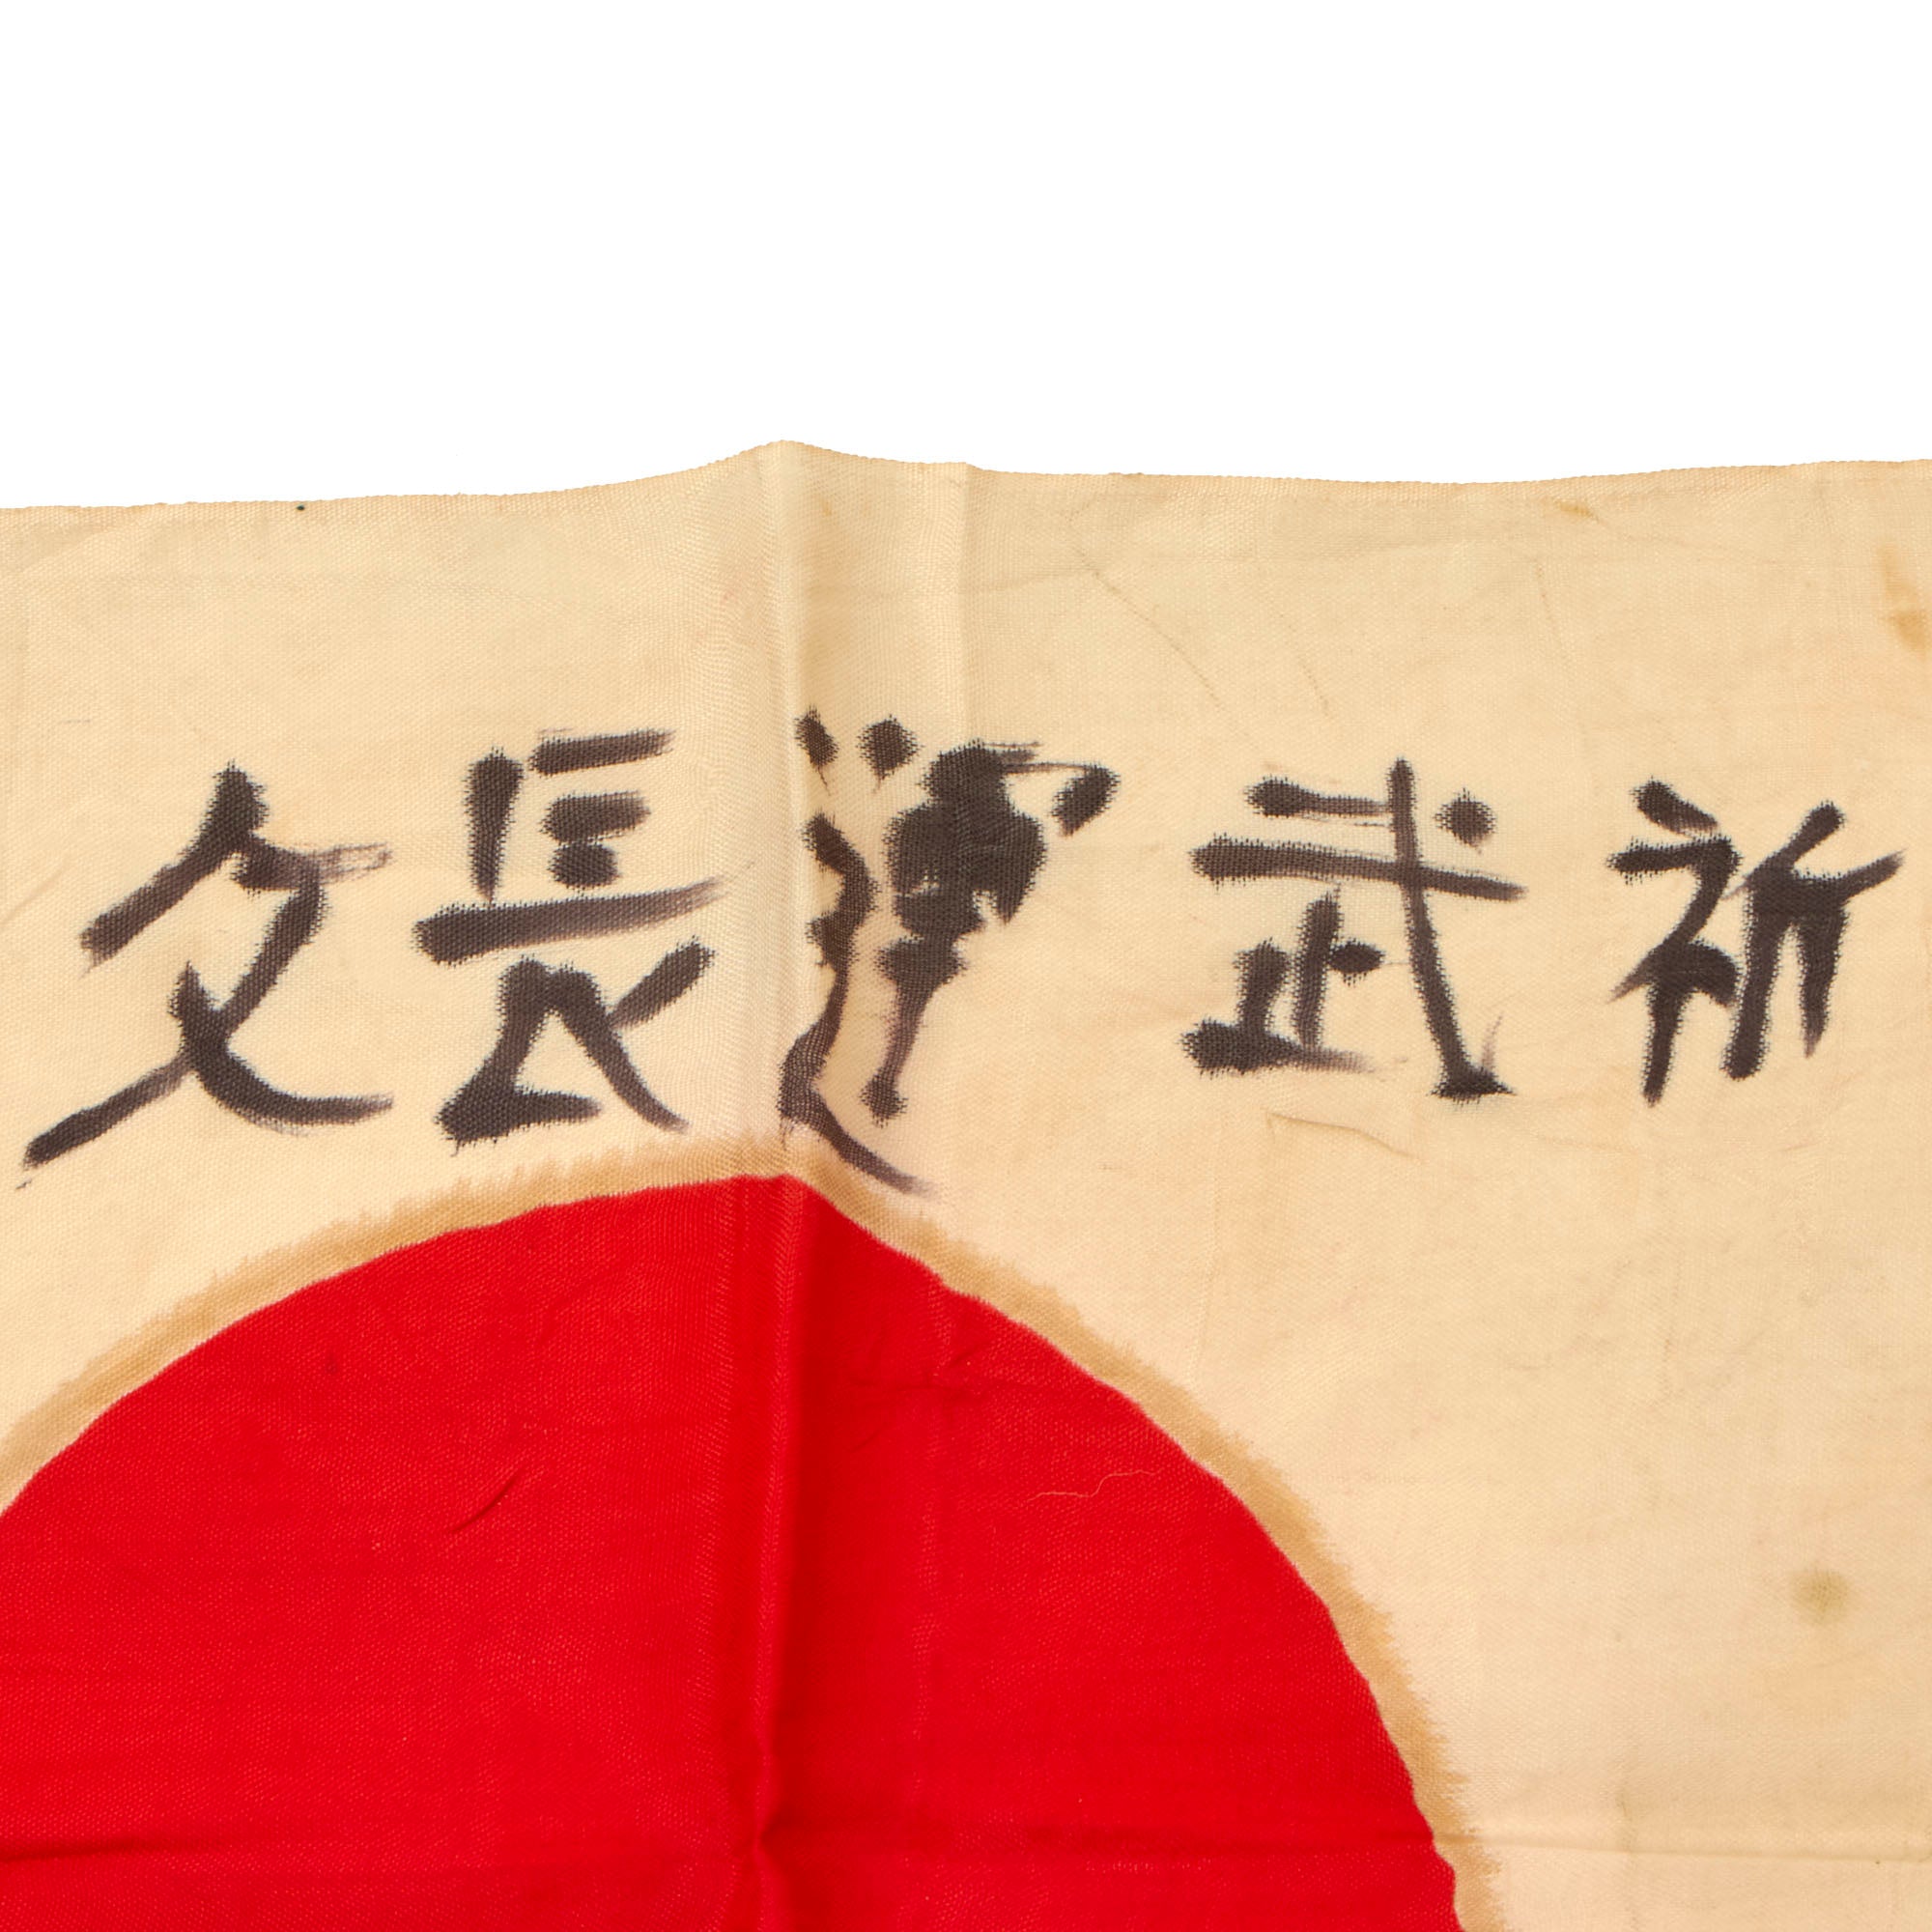 祈武運長久